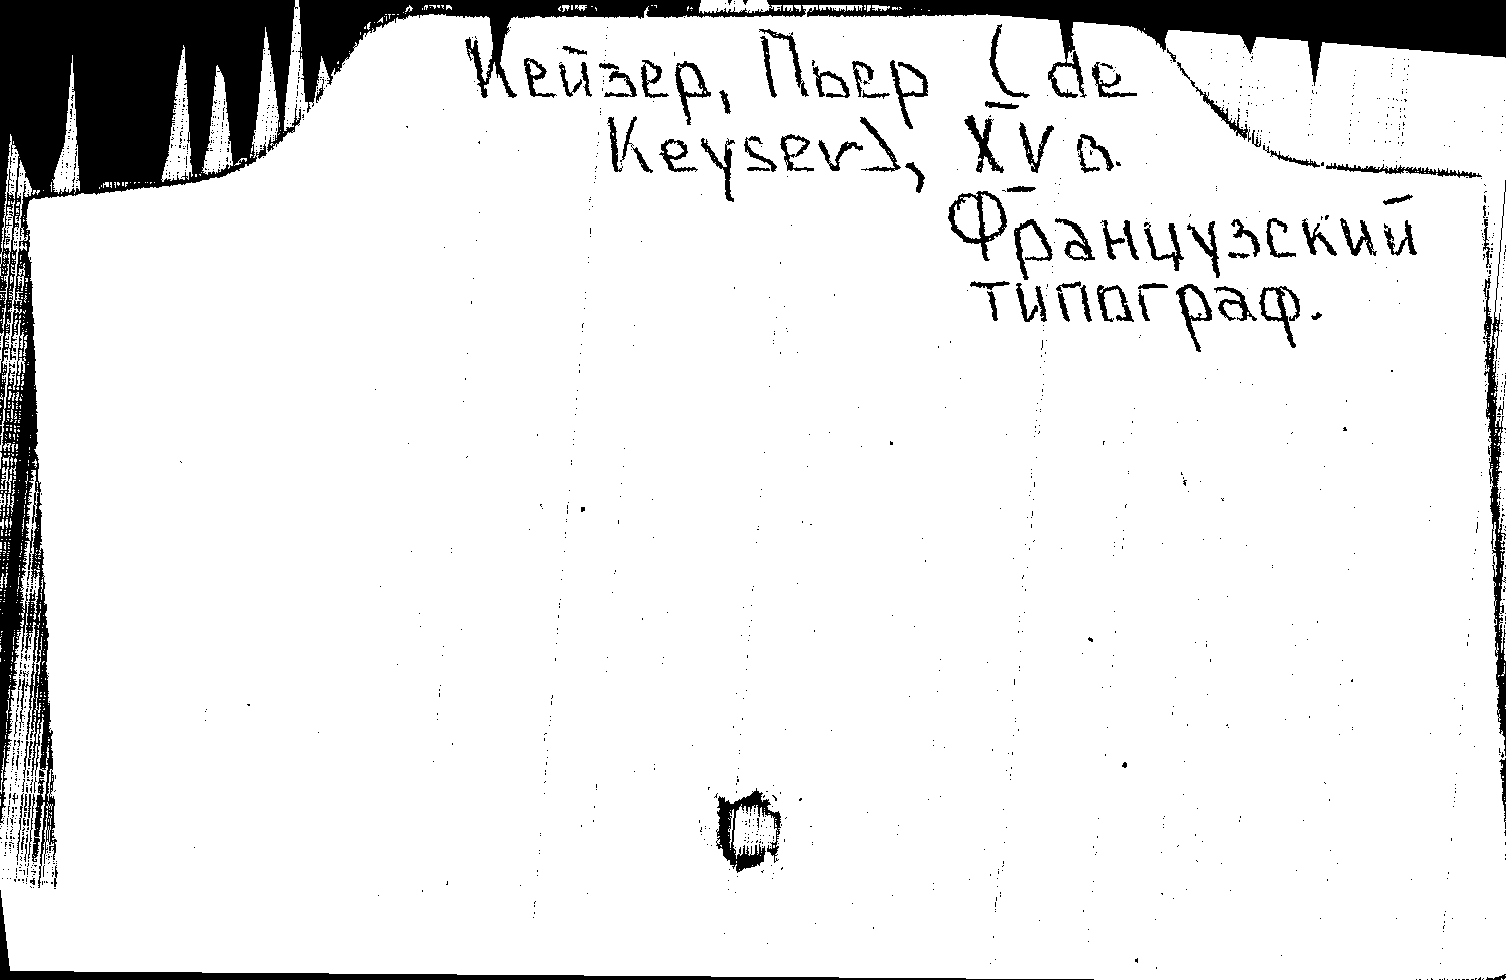 Кейзер, Пьер (de
Keyser), XV в.
Французский
типограф.